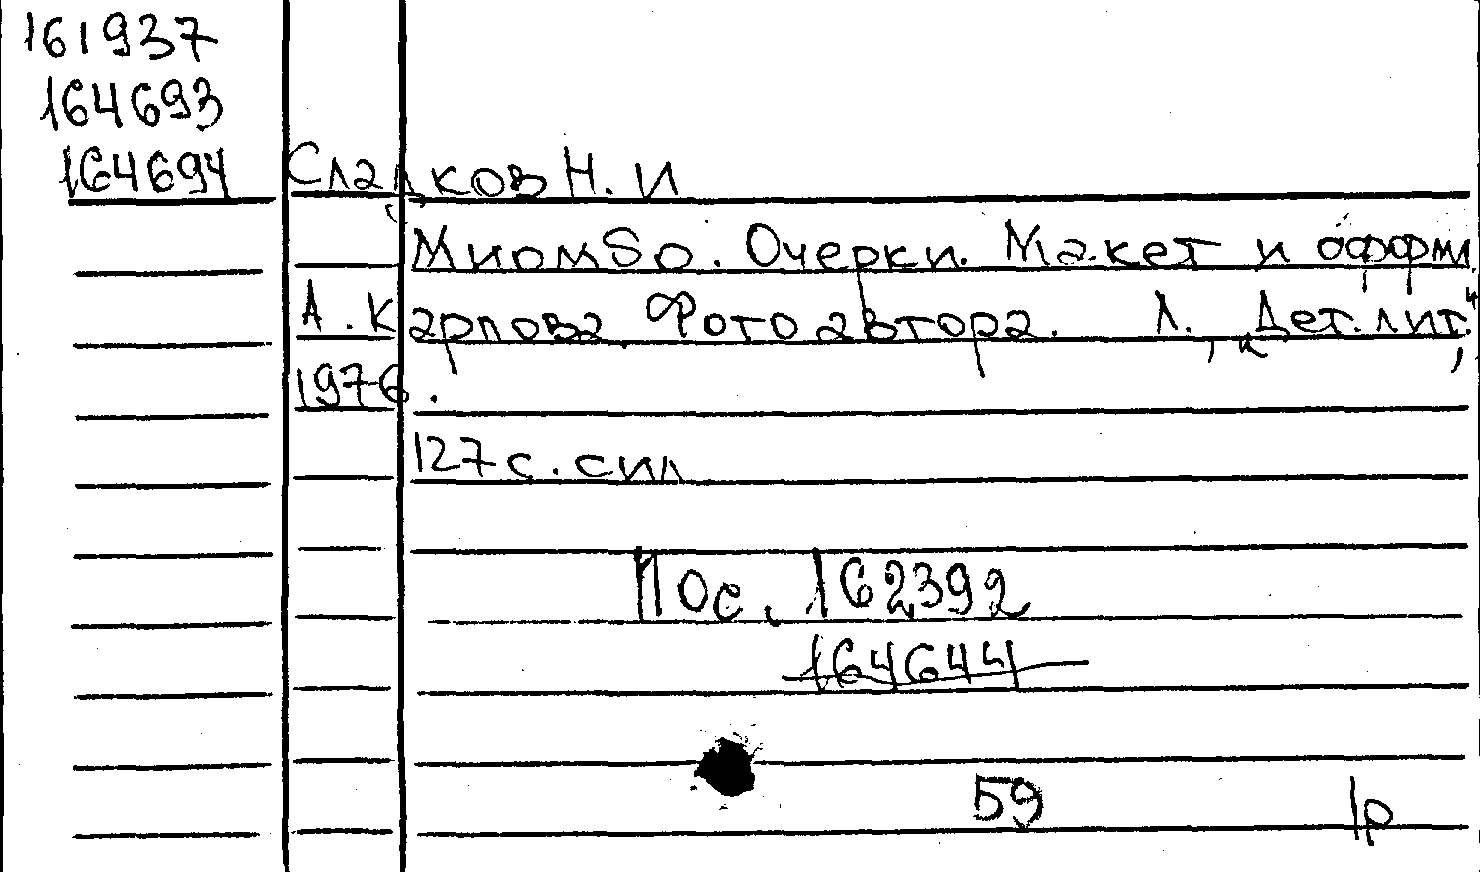 161937
164693
164694 Сладков Н. И
Миомбо. Очерки. Макет и оформл.
А. Карпова. Фото автора. Л., "Дет. лит.",
1976.
127 с. с ил
Пос. 162392
164644
59 1р